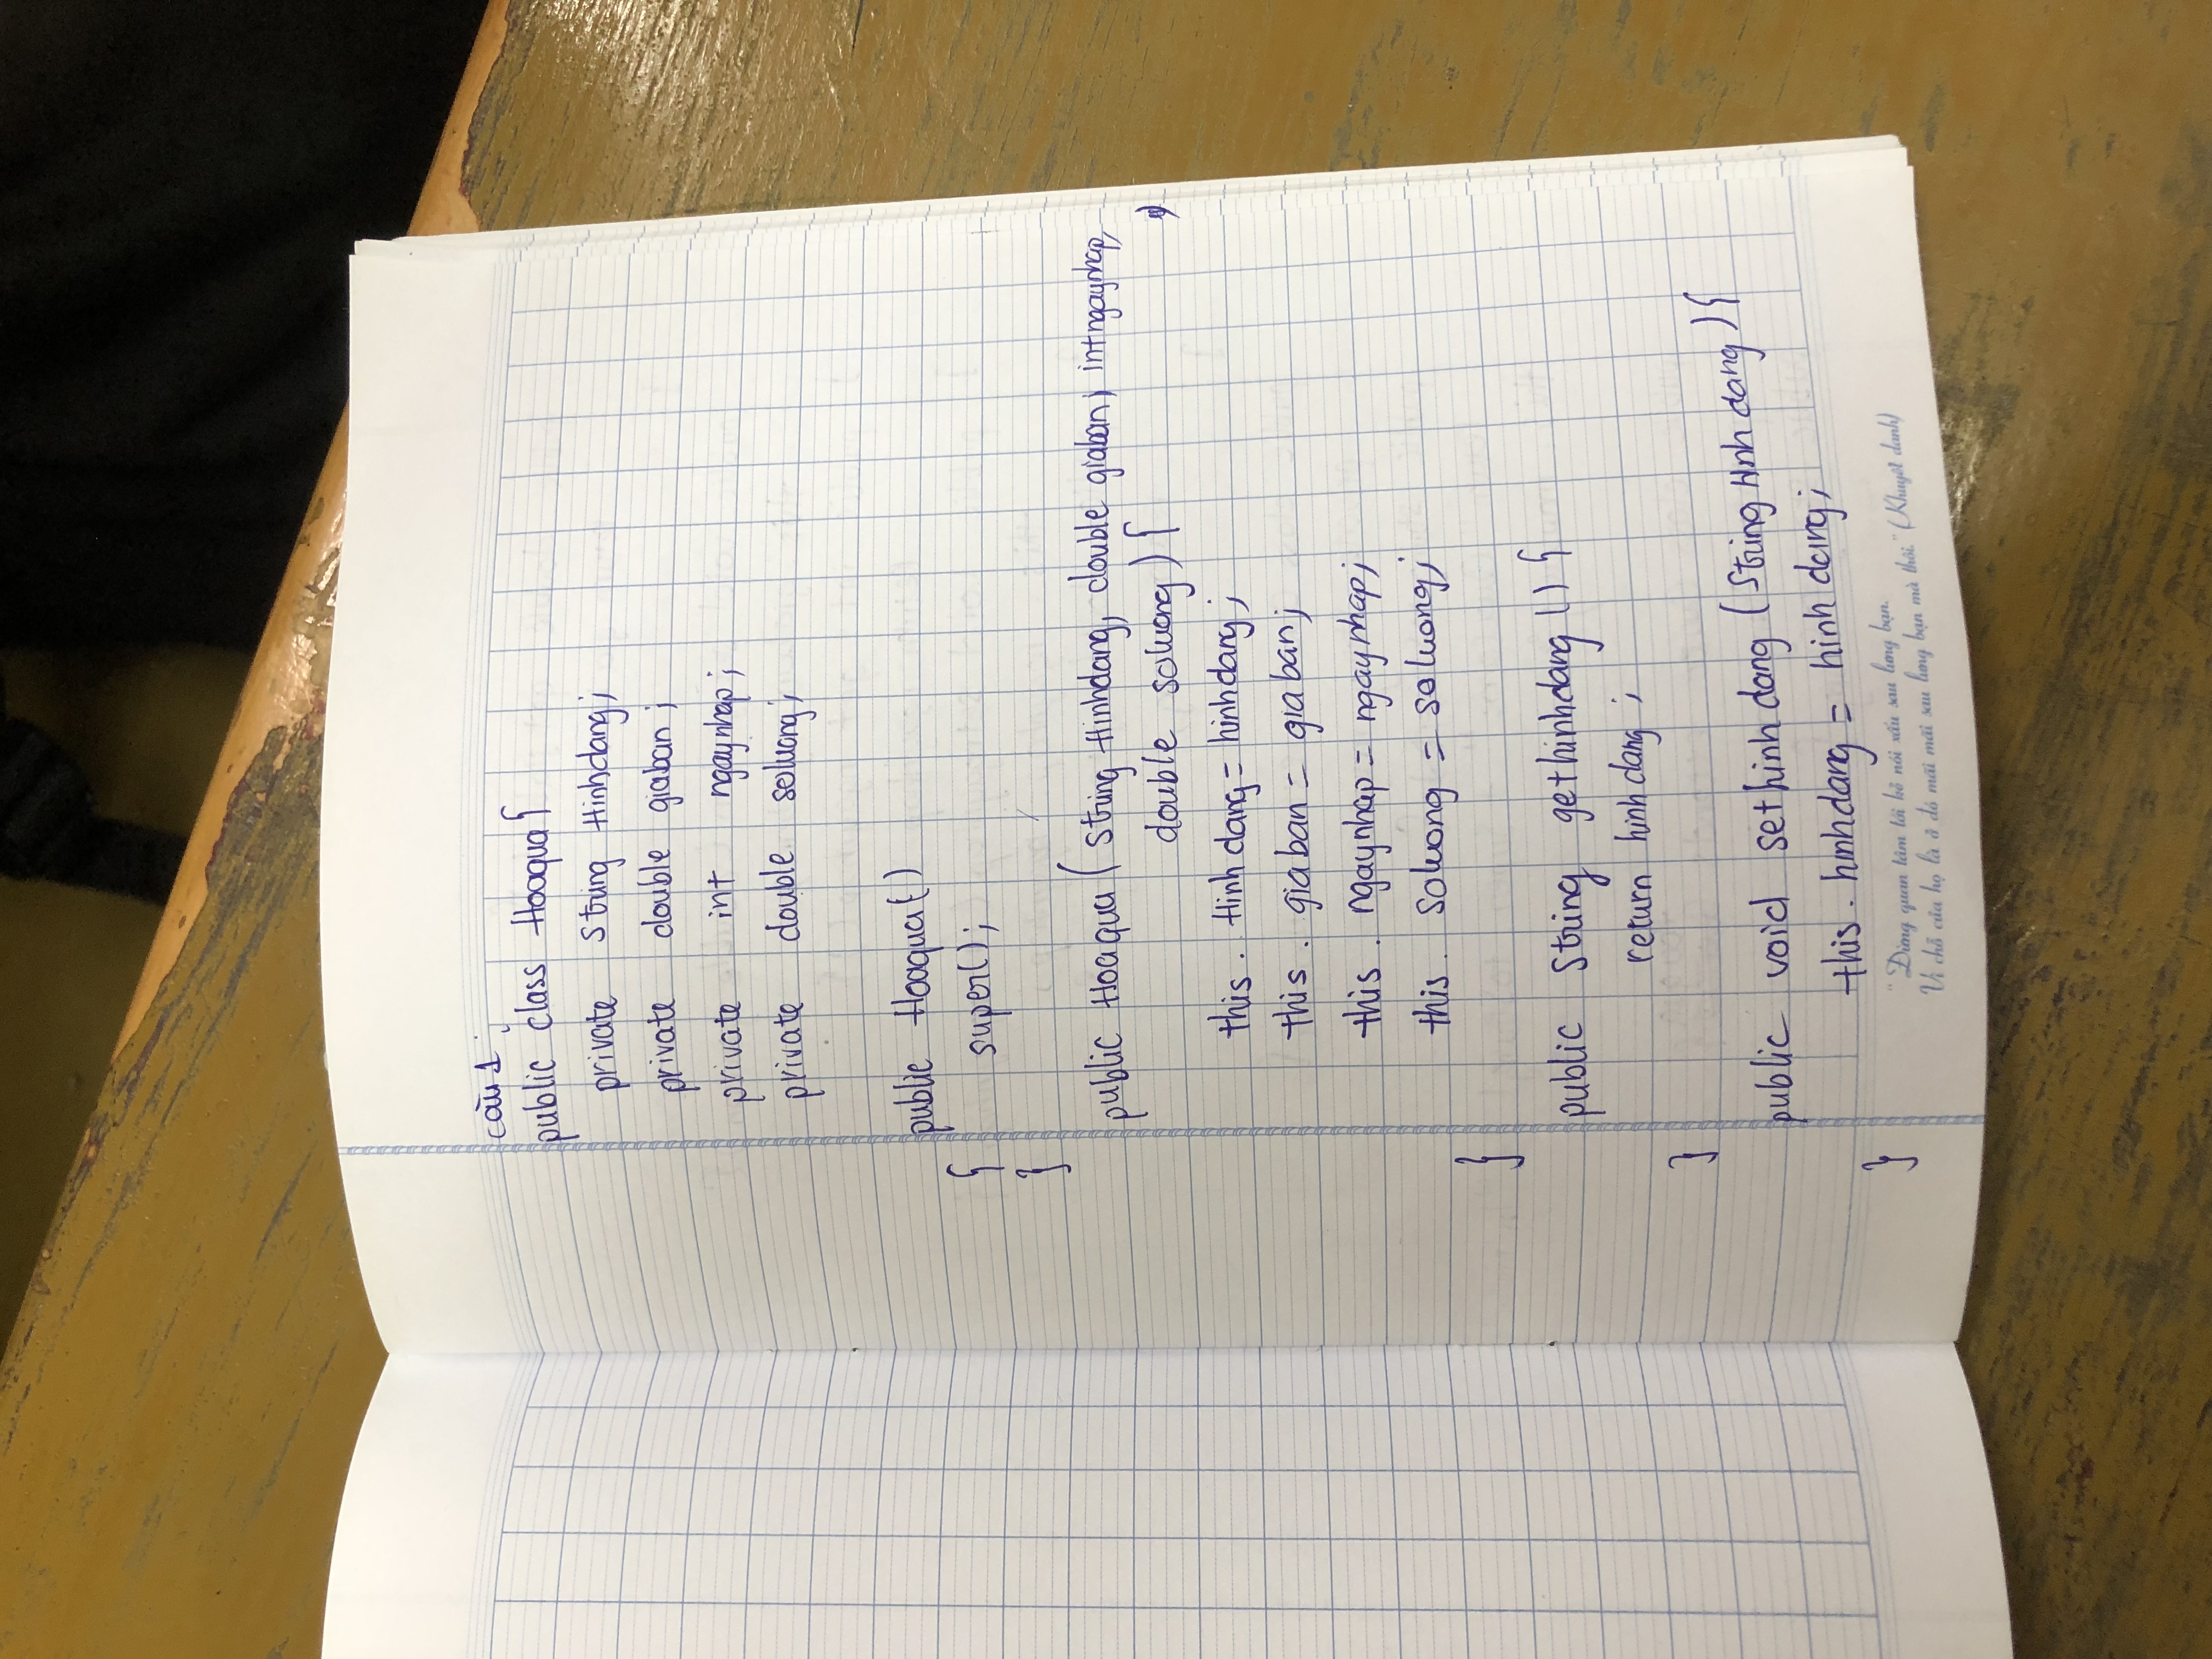 câu 1:
public class Hoaqua{
private String Hinhdang;
private double giaban;
private int ngaynhap;
private double soluong;
public Hoaqua()
{ super();
}
public Hoaqua (String Hinhdang, double giaban, int ngaynhap,
double soluong) {
this. Hinhdang = hinhdang;
this. giaban = giaban;
this. ngaynhap = ngaynhap;
this. soluong = soluong;
}
public String gethinhdang () {
return hinhdang ;
}
public void sethinhdang (String Hinhdang ) {
this. hinhdang = hinhdang;
}
"Đừng quan tâm tới kẻ nói xấu sau lưng bạn.
Vì chỗ của họ là ở đó mãi mãi sau lưng bạn mà thôi." (Khuyết danh)